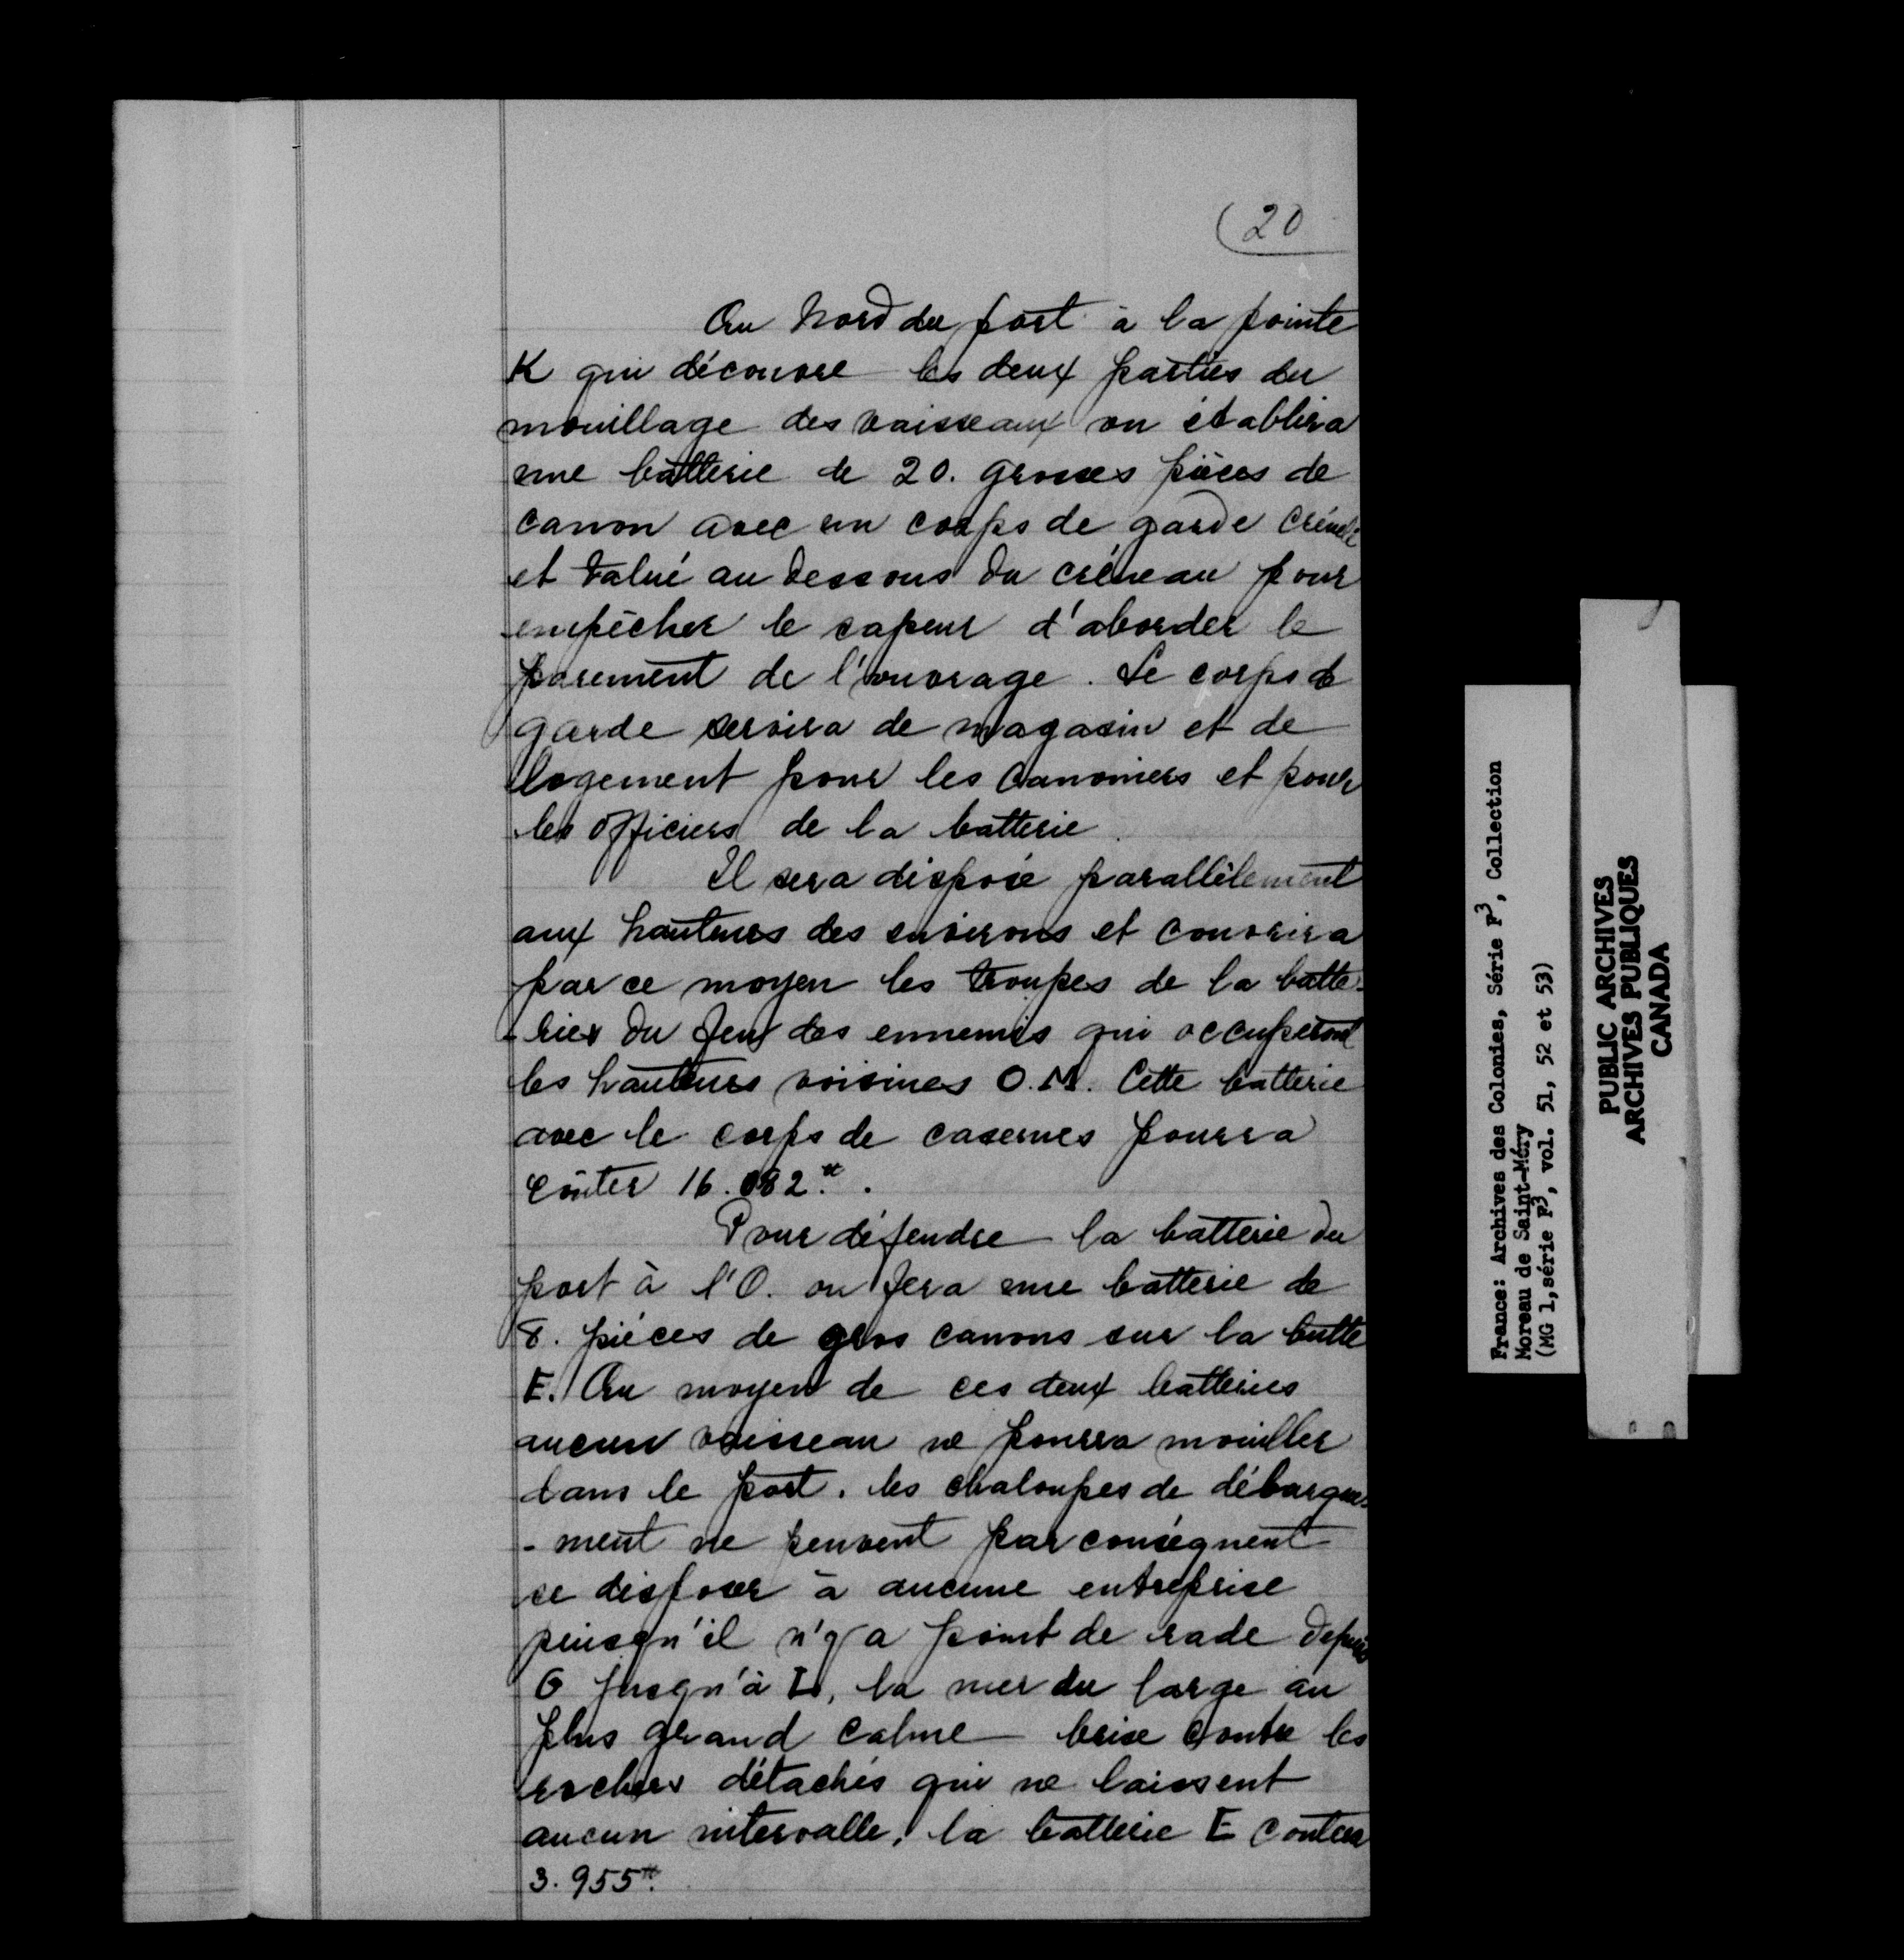 20
Au Nord du port à la pointe
K qui découvre les deux parties du
mouillage des vaisseaux on établira
une batterie de 20. grosses pièces de
canon avec un corps de garde crénelé
et talué au dessous du créneau pour
empêcher le sapeur d'aborder le
parement de l'ouvrage. Le corps de
garde servira de magasin et de
logement pour les canoniers et pour
les officiers de la batterie.
Il sera disposé parallèlement
aux hauteurs des environs et couvrira
par ce moyen les troupes de la batte-
-ries du feu des ennemis qui occuperont
les hauteurs voisines O.M. Cette batterie
avec le corps de casernes pourra
coûter 16.082.#.
Pour défendre la batterie du
port à l'O. on fera une batterie de
8. pièces de gros canons sur la butte
E. Au moyen de ces deux batteries
aucun vaisseau ne pourra mouiller
dans le port. les chaloupes de débarque-
-ment ne peuvent par conséquent
se disposer à aucune entreprise
puisqu'il n'y a point de rade depuis
G jusqu'à L, la mer du large au
plus grand calme brise contre les
rochers détachés qui ne laissent
aucun intervalle, la batterie E coutera
3.955#.
France: Archives des Colonies, Série F3, Collection
Moreau de Saint-Méry
(MG 1, série F3, vol. 51, 52 et 53)
PUBLIC ARCHIVES
ARCHIVES PUBLIQUES
CANADA